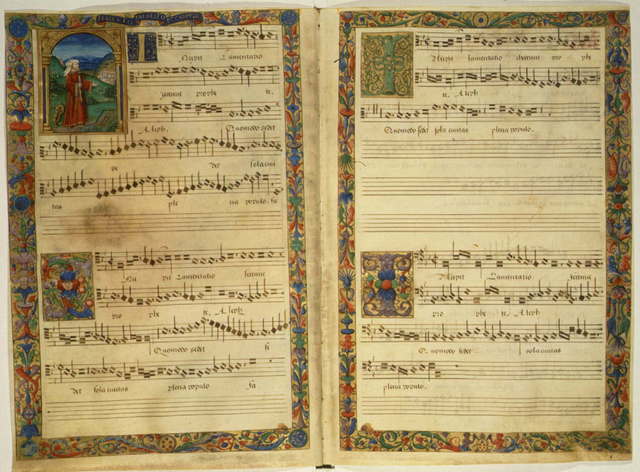 Ncipit Lamentatio
prophe
Aleph. Quomodo sedet
sola civi
tas ple na populo.
Lamentatio
pro phe ti. Aleph
Quomodo sedet
det sola civitas plena populo
Ncipit lamentatio pro phe
ti. Aleph
Quomodo sedet sola civitas plena populo.
Ncipit Lamentatio
pro phe ti. Aleph
Quomodo sedet sola civitas
plena populo.